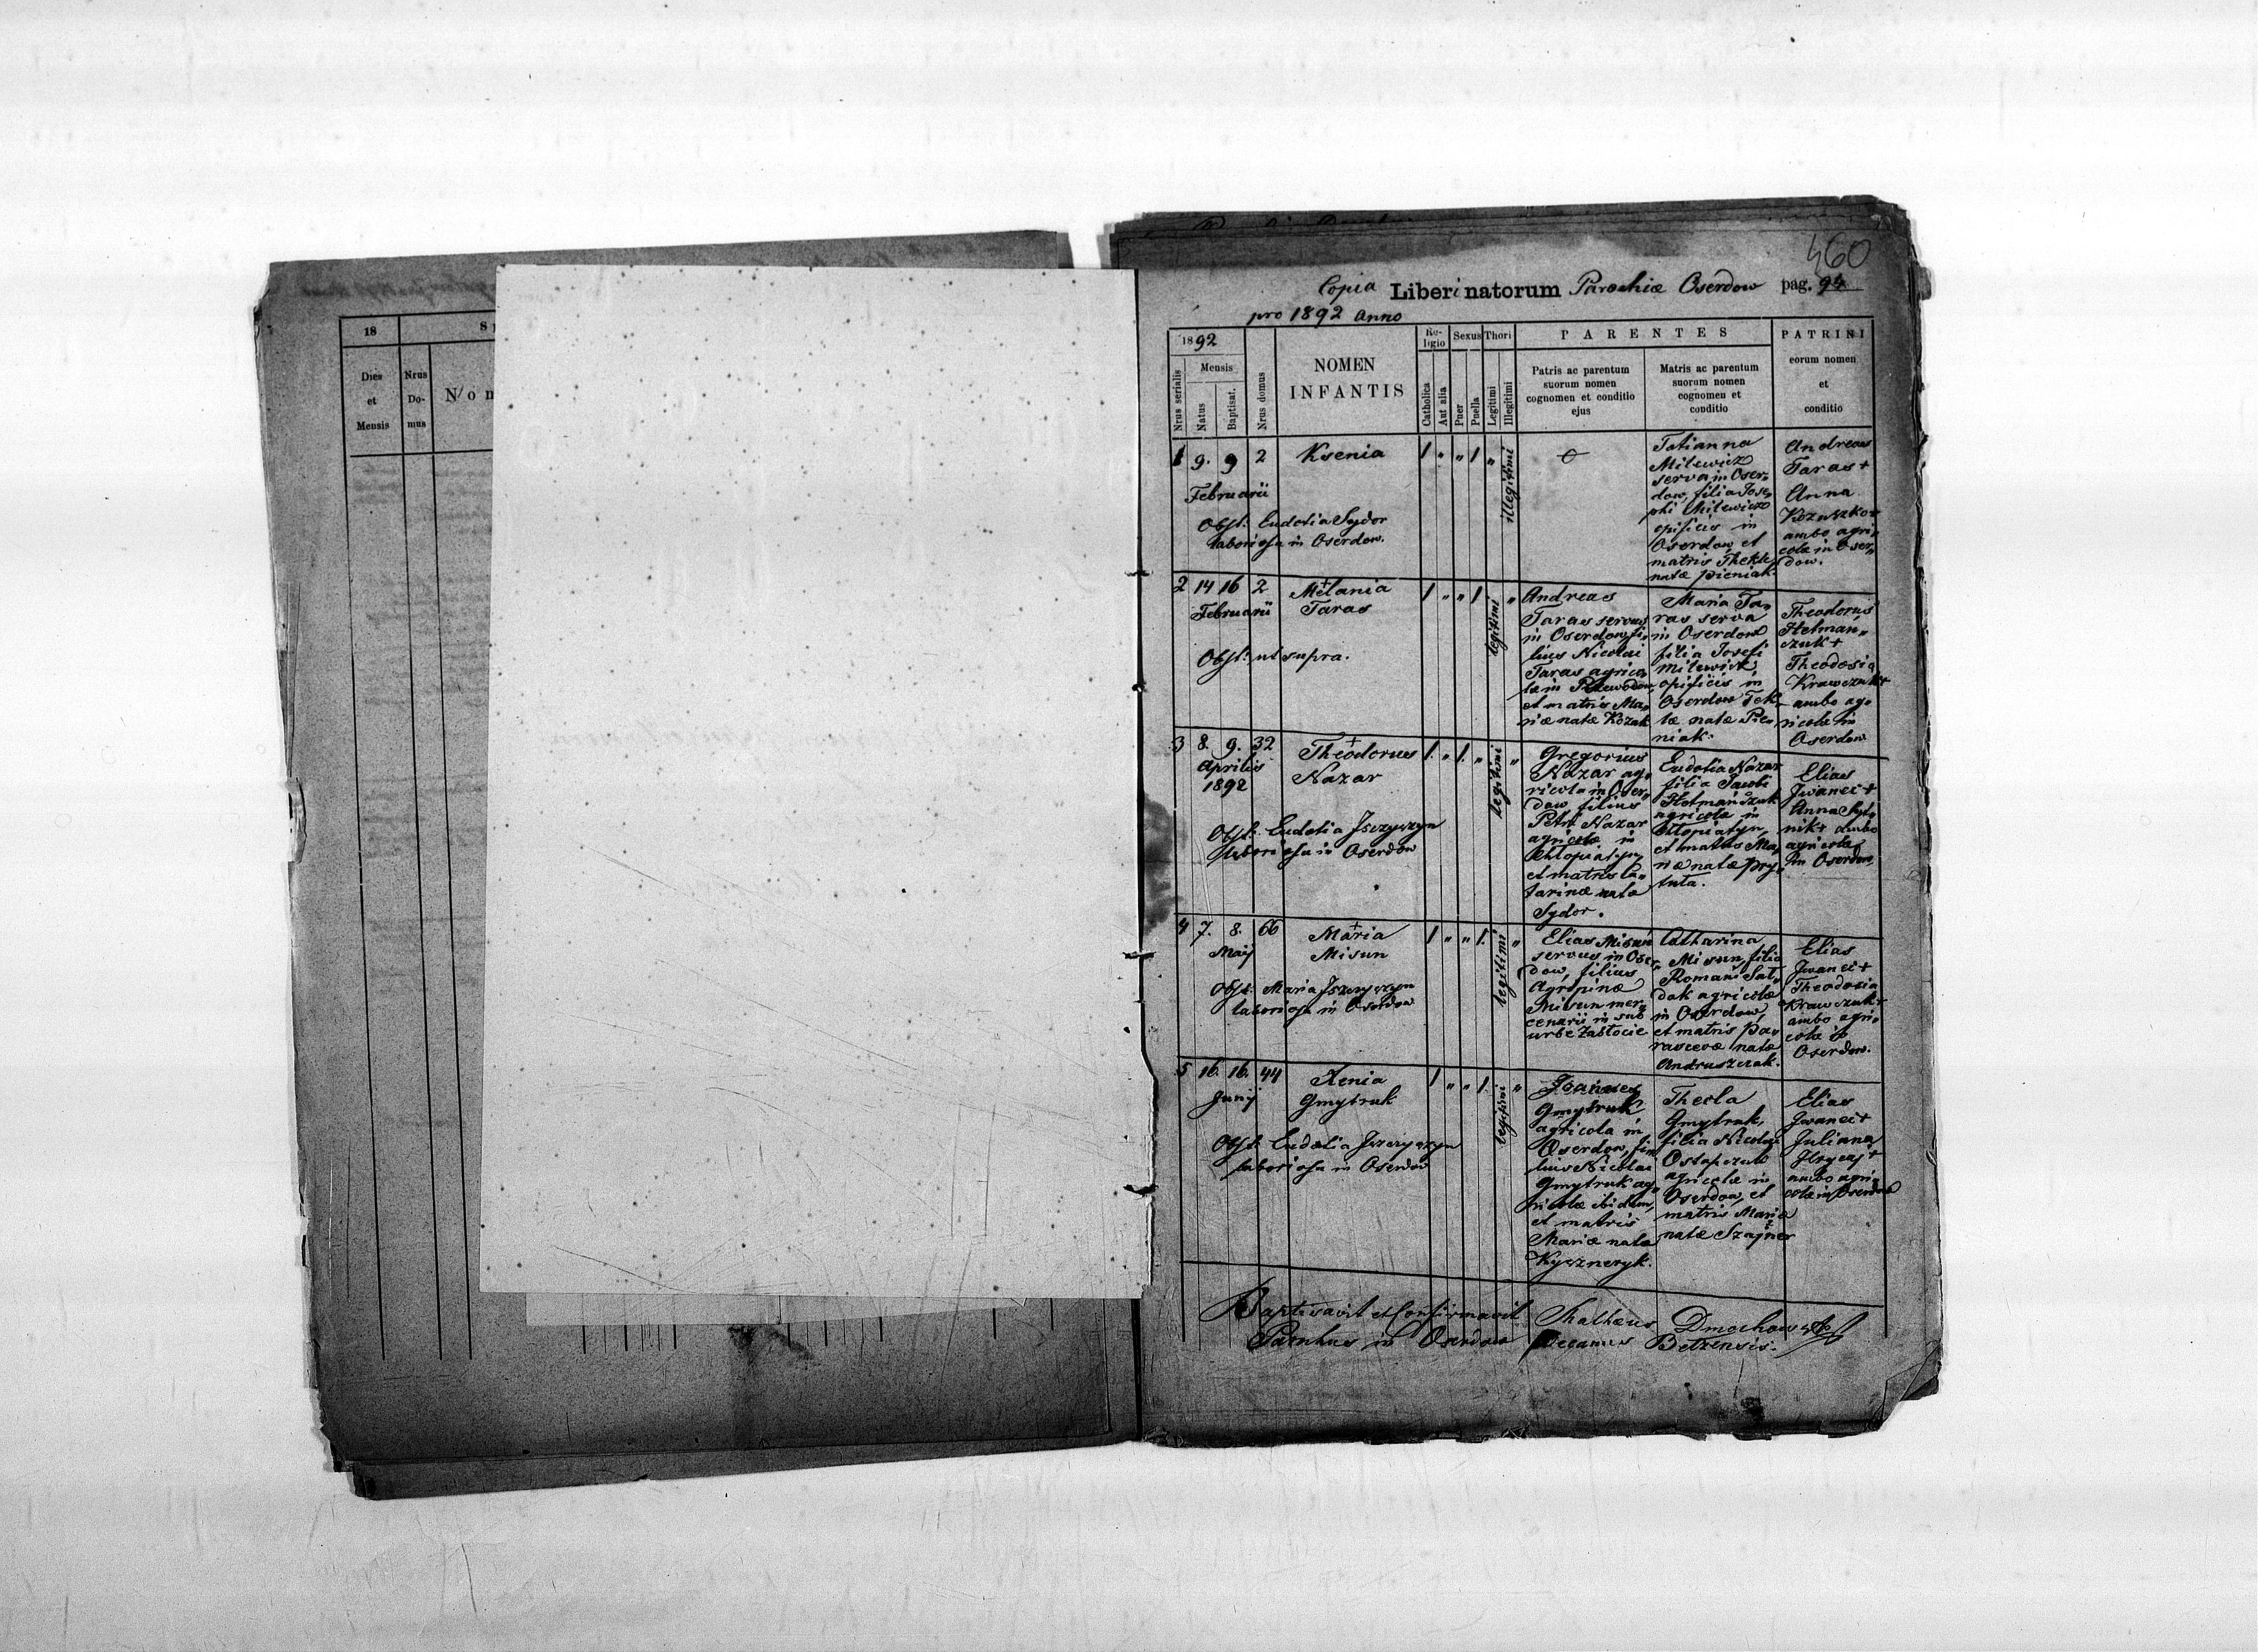 18
Dies
et
Mensis
Nrus
Do-
mus
460
Copia Liber natorum Parochiæ Oserdow pag. 94
pro 1892 Anno
1892
Nrus serialis
Mensis
Natus
Baptisat.
Nrus domus
NOMEN
INFANTIS
Re-
ligio
Catholica
Aut alia
Sexus
Puer
Puella
Thori
Legitimi
Illegitimi
PARENTES
Patris ac parentum
suorum nomen
cognomen et conditio
ejus
Matris ac parentum
suorum nomen
cognomen et
conditio
PATRINI
eorum nomen
et
conditio
1 9. 9 2 Ksenia 1 " " 1 " illegitimi
Februarii
Obst: Eudotia Sydor
laboriosa in Oserdow.
Tatianna
Milewicz
serva in Oser„
dow, filia Jose„
phi Milewicz
opificis in
Oserdow, et
matris Theklæ
natæ Pieniak.
Andreas
Taras +
Anna
Kozuszko +
ambo agri„
colæ in Oser„
dow.
2 14 16 2 Melania 1 " " 1 legitimi "
Februarii Taras
Obst: ut supra.
Andreas
Taras servus
in Oserdow, fi„
lius Nicolai
Taras agrico„
læ in
et matris Ma„
riæ natæ Kozak
Maria Ta„
ras serva
in Oserdow
filia Josefi
Milewicz
opificis in
Oserdow Tek„
læ natæ Pie„
niak.
Theodorus
Hetman„
czuk +
Theodosia
Krawczuk +
ambo ag„
ricolæ in
Oserdow
3 8. 9. 32 Theodorus 1. " 1. " legitimi "
Aprilis Nazar
1892
Obst: Eudotia Iszczyszyn
laboriosa in Oserdow
Gregorius
Nazar ag„
ricola in Oser„
dow, filius
Petri Nazar
agricolæ in
Chłopiatyn
et matris Ca„
tarinæ natæ
Sydor.
Eudotia Nazar
filia Jacobi
Hetmańczuk
agricolæ in
Chłopiatyn,
et matris Ma„
riæ natæ Pry„
tuła.
Elias
Iwanei +
Anna
nik + ambo
agricolæ
in Oserdow.
4 7. 8. 66 Maria 1 " " 1. legitimi "
Maij Misun
Obst: Maria Iszczyszyn
laboriosa in Oserdow
Elias Misun
servus in Oser„
dow, filius
Agripinæ
Misun mer„
cenarii in sub
urbe Zabłocie
Catharina
Misun, filia
Romani Sał„
dak agricolæ
in Oserdow,
et matris Pa„
rascevæ natæ
Andruszczak.
Elias
Iwanei +
Theodosia
Krawczuk +
ambo agri„
colæ in
Oserdow.
5 16. 16. 44 Xenia 1 " " 1. legitimi "
Junij Gmytruk
Obst: Eudotia Iszczyszyn
laboriosa in Oserdow
Joannes
Gmytruk
agricola in
Oserdow, fi„
lius Nicolai
Gmytruk ag„
ricolæ ibidem,
et matris
Mariæ natæ
Kyszneryk.
Thecla
Gmytruk,
filia Nicolai
Ostapczuk
agricolæ in
Oserdow, et
matris Mariæ
natæ Szajner
Elias
Iwanei +
Juliana
Hrycaj +
ambo agri„
colæ in Oserdow
Baptisavit et Confirmavit Mathæus Dmochowski
Parohus in Oserdow Decanus Bełzensis.